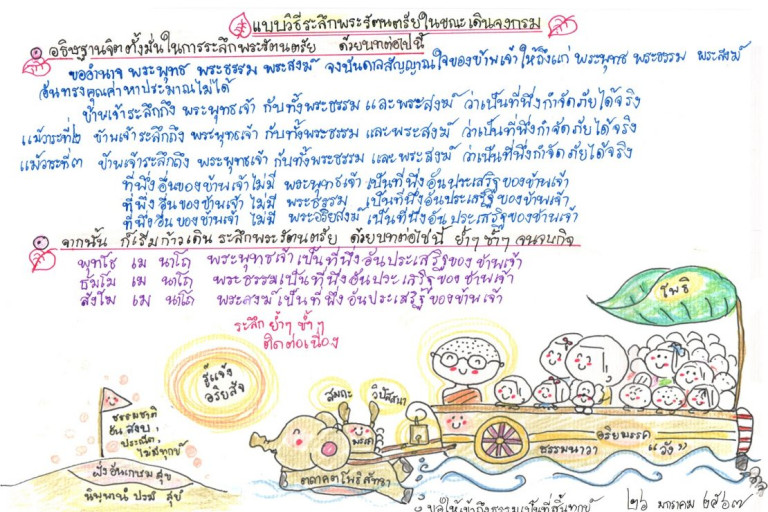 แบบวิธีระลึกพระรัตนตรัยในขณะเดินจงกรม
อธิษฐานจิตตั้งมั่นในการระลึกพระรัตนตรัย ด้วยบทต่อไปนี้
ขออำนาจ พระพุทธ พระธรรม พระสงฆ์ จงบันดาลสัญญาณใจของข้าพเจ้าให้ถึงแก่ พระพุทธ พระธรรม พระสงฆ์
อันทรงคุณค่าหาประมาณไม่ได้
ข้าพเจ้าระลึกถึง พระพุทธเจ้า กับทั้งพระธรรม และพระสงฆ์ ว่าเป็นที่พึ่งกำจัดภัยได้จริง
แม้วาระที่๒ ข้าพเจ้าระลึกถึง พระพุทธเจ้า กับทั้งพระธรรม และพระสงฆ์ ว่าเป็นที่พึ่งกำจัดภัยได้จริง
แม้วาระที่๓ ข้าพเจ้าระลึกถึง พระพุทธเจ้า กับทั้งพระธรรม และพระสงฆ์ ว่าเป็นที่พึ่งกำจัดภัยได้จริง
ที่พึ่งอื่นของข้าพเจ้าไม่มี พระพุทธเจ้า เป็นที่พึ่งอันประเสริฐของข้าพเจ้า
ที่พึ่งอื่นของข้าพเจ้า ไม่มี พระธรรม เป็นที่พึ่งอันประเสริฐของข้าพเจ้า
ที่พึ่งอื่นของข้าพเจ้า ไม่มี พระอริยสงฆ์ เป็นที่พึ่งอันประเสริฐของข้าพเจ้า
จากนั้น ก็เริ่มก้าวเดิน ระลึกพระรัตนตรัย ด้วยบทต่อไปนี้ ย้ำๆ ซ้ำๆ จนจบกิจ
พุทโธ เม นาโถ พระพุทธเจ้าเป็นที่พึ่งอันประเสริฐของข้าพเจ้า
ธัมโม เม นาโถ พระธรรมเป็นที่พึ่งอันประเสริฐของข้าพเจ้า
สังโฆ เม นาโถ พระสงฆ์เป็นที่พึ่งอันประเสริฐของข้าพเจ้า
ระลึก ย้ำๆ ซ้ำๆ
ติดต่อเนื่อง
โพธิ
รู้แจ้ง
อริยสัจ
สมถะ วิปัสสนา
มรรค
ธรรมชาติ
อันสงบ,
ประณีต,
ไม่มีทุกข์
ฝั่งอันเกษมสุข
นิพพานัง ปรมัง สุขัง
ตถาคตโพธิสัทธา
ธรรมนาวา
อริยมรรค
"วัง"
๒๖ มกราคม ๒๕๖๗